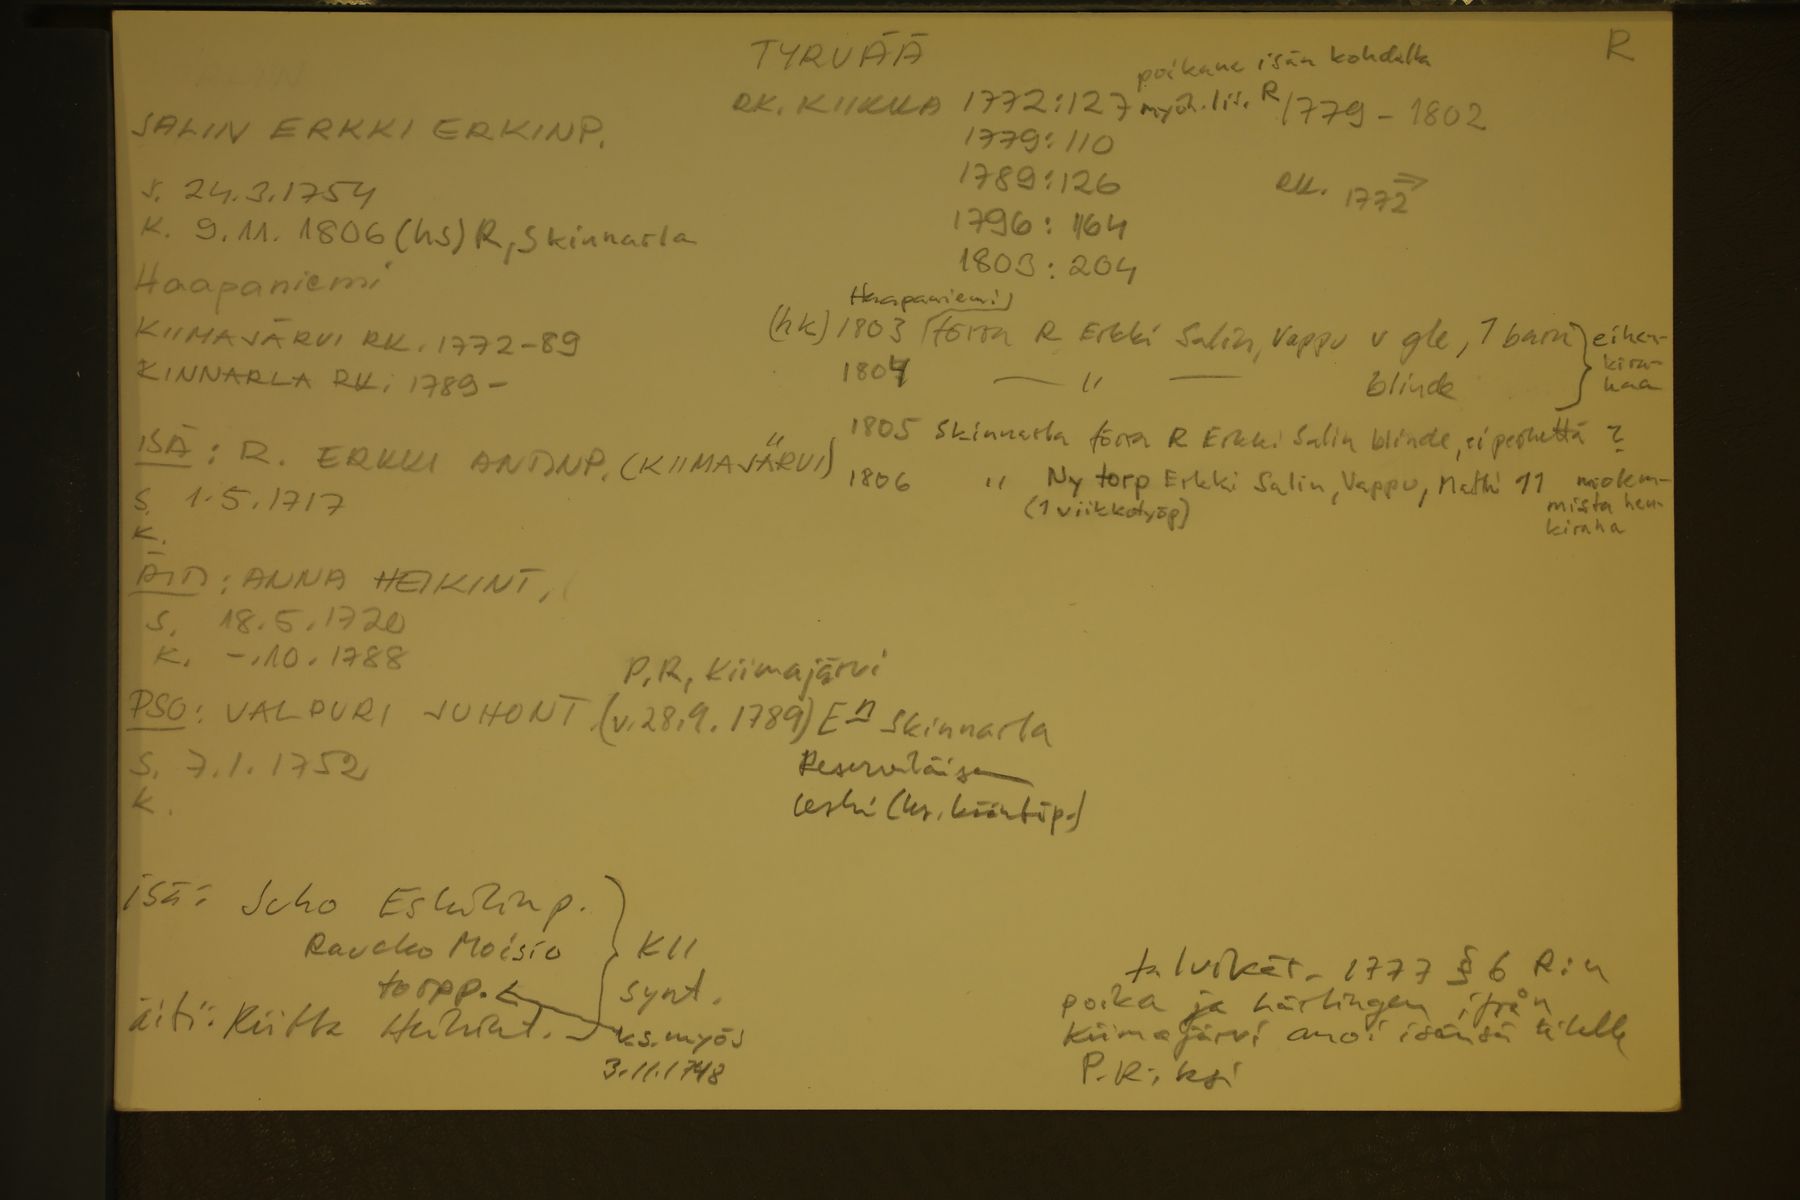 TYRVÄÄ
R
SALIN ERKKI ERKINP.
s. 24.3.1754
K. 9.11.1806 (hs) R, Skinnarla
Haapaniemi
KIIMAJÄRVI RK. 1772-89
KINNARLA RK: 1789-
ISÄ: R. ERKKI ANTINP. (KIIMAJÄRVI)
S. 1.5.1717
K.
ÄITI: ANNA HEIKINT.
S. 18.5.1720
K. -.10.1788
P.R, Kiimajärvi
PSO: VALPURI JUHONT. (v. 28.9.1789) En Skinnarla
S. 7.1.1752
K.
Reserviläisen
leski (ks. kääntöp.)
isä: Juho Eskilinp.
Raucko Moisio
torpp.
äiti: Riitta Heikint.
KII
synt.
ks. myös
3.11.1748
poikana isän kohdalla
RK. KIIKKA 1772:127 myöh. lis. R 1779-1802
1779:110
1789:126
RK. 1772 =>
1796:164
1803:204
Haapaniemi
(hk) 1803 förra R Erkki Salin, Vappu v gle, 1 barn } ei hen-
kira-
haa
1804 — " — blinde
1805 Skinnarla förra R Erkki Salin blinde, ei perhettä ?
1806 " Ny torp Erkki Salin, Vappu, Matti 11 molem-
mista hen-
kiraha
(1 viikkotyöp)
talvikär. 1777 § 6 R:n
poika ja härlingen ifrån
Kiimajärvi anoi isänsä tilalle
P.R:ksi